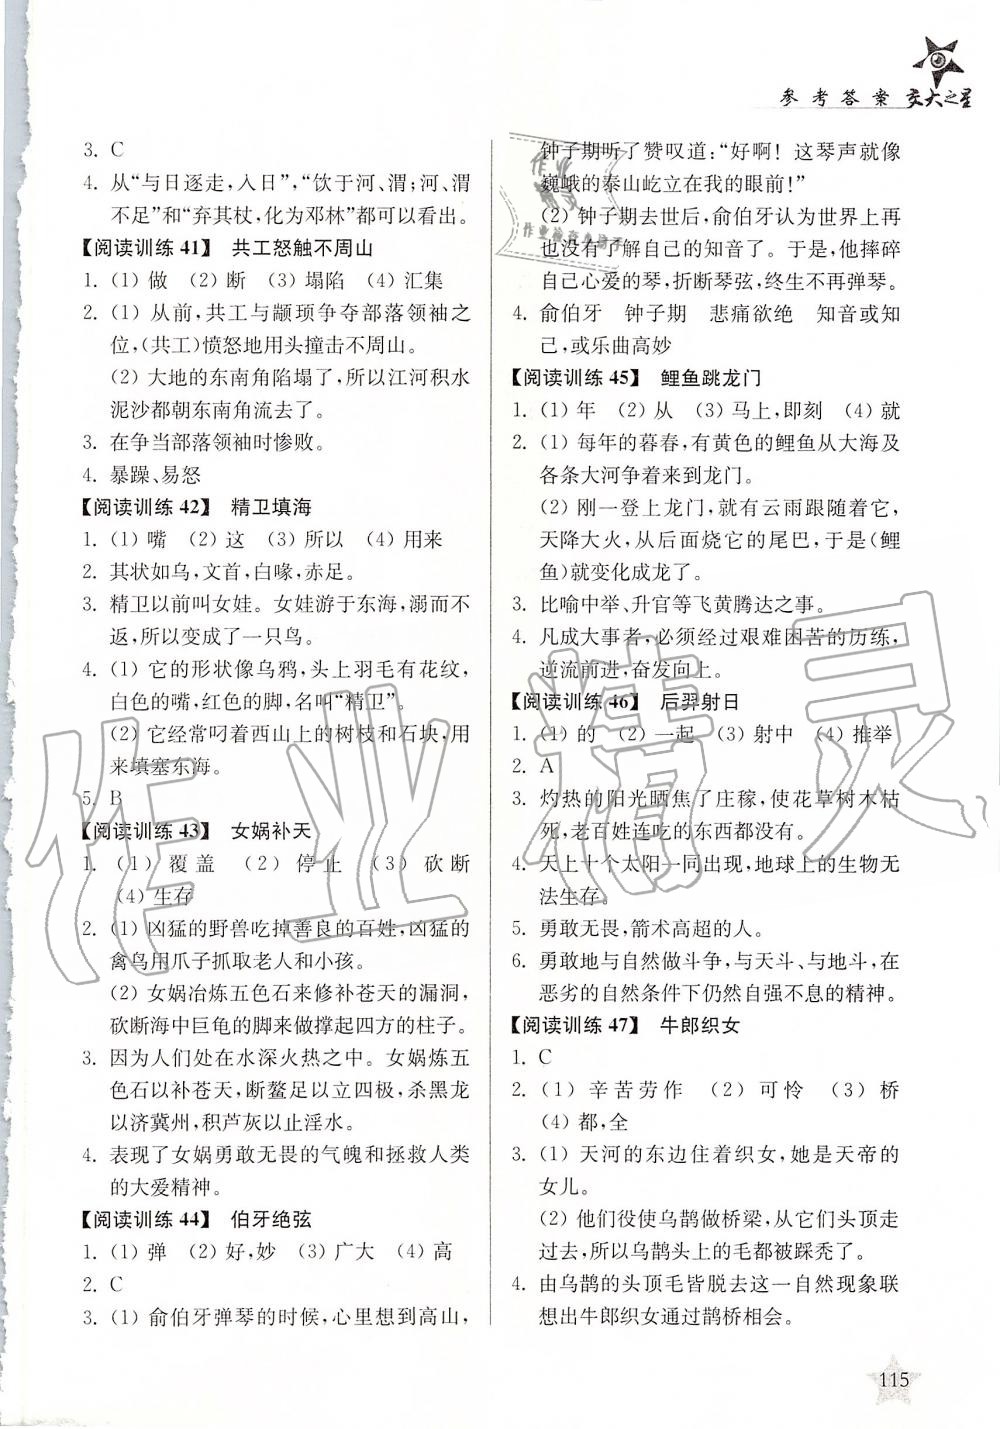 参考答案 交大之星
3. C
4. 从“与日逐走，入日”，“饮于河、渭；河、渭
不足”和“弃其杖，化为邓林”都可以看出。
【阅读训练 41】 共工怒触不周山
1. (1) 做 (2) 断 (3) 塌陷 (4) 汇集
2. (1) 从前，共工与颛顼争夺部落领袖之
位，(共工)愤怒地用头撞击不周山。
(2) 大地的东南角陷塌了，所以江河积水
泥沙都朝东南角流去了。
3. 在争当部落领袖时惨败。
4. 暴躁、易怒
【阅读训练 42】 精卫填海
1. (1) 嘴 (2) 这 (3) 所以 (4) 用来
2. 其状如乌，文首，白喙，赤足。
3. 精卫以前叫女娃。女娃游于东海，溺而不
返，所以变成了一只鸟。
4. (1) 它的形状像乌鸦，头上羽毛有花纹，
白色的嘴，红色的脚，名叫“精卫”。
(2) 它经常叼着西山上的树枝和石块，用
来填塞东海。
5. B
【阅读训练 43】 女娲补天
1. (1) 覆盖 (2) 停止 (3) 砍断
(4) 生存
2. (1) 凶猛的野兽吃掉善良的百姓，凶猛的
禽鸟用爪子抓取老人和小孩。
(2) 女娲冶炼五色石来修补苍天的漏洞，
砍断海中巨龟的脚来做撑起四方的柱子。
3. 因为人们处在水深火热之中。女娲炼五
色石以补苍天，断鳌足以立四极，杀黑龙
以济冀州，积芦灰以止淫水。
4. 表现了女娲勇敢无畏的气魄和拯救人类
的大爱精神。
【阅读训练 44】 伯牙绝弦
1. (1) 弹 (2) 好，妙 (3) 广大 (4) 高
2. C
3. (1) 俞伯牙弹琴的时候，心里想到高山，
钟子期听了赞叹道：“好啊！这琴声就像
巍峨的泰山屹立在我的眼前！”
(2) 钟子期去世后，俞伯牙认为世界上再
也没有了解自己的知音了。于是，他摔碎
自己心爱的琴，折断琴弦，终生不再弹琴。
4. 俞伯牙 钟子期 悲痛欲绝 知音或知
己，或乐曲高妙
【阅读训练 45】 鲤鱼跳龙门
1. (1) 年 (2) 从 (3) 马上，即刻 (4) 就
2. (1) 每年的暮春，有黄色的鲤鱼从大海及
各条大河争着来到龙门。
(2) 刚一登上龙门，就有云雨跟随着它，
天降大火，从后面烧它的尾巴，于是(鲤
鱼)就变化成龙了。
3. 比喻中举、升官等飞黄腾达之事。
4. 凡成大事者，必须经过艰难困苦的历练，
逆流前进，奋发向上。
【阅读训练 46】 后羿射日
1. (1) 的 (2) 一起 (3) 射中 (4) 推举
2. A
3. 灼热的阳光晒焦了庄稼，使花草树木枯
死，老百姓连吃的东西都没有。
4. 天上十个太阳一同出现，地球上的生物无
法生存。
5. 勇敢无畏，箭术高超的人。
6. 勇敢地与自然做斗争，与天斗、与地斗，在
恶劣的自然条件下仍然自强不息的精神。
【阅读训练 47】 牛郎织女
1. C
2. (1) 辛苦劳作 (2) 可怜 (3) 桥
(4) 都，全
3. (1) 天河的东边住着织女，她是天帝的
女儿。
(2) 他们役使乌鹊做桥梁，从它们头顶走
过去，所以乌鹊头上的毛都被踩秃了。
4. 由乌鹊的头顶毛皆脱去这一自然现象联
想出牛郎织女通过鹊桥相会。
115
作业精灵